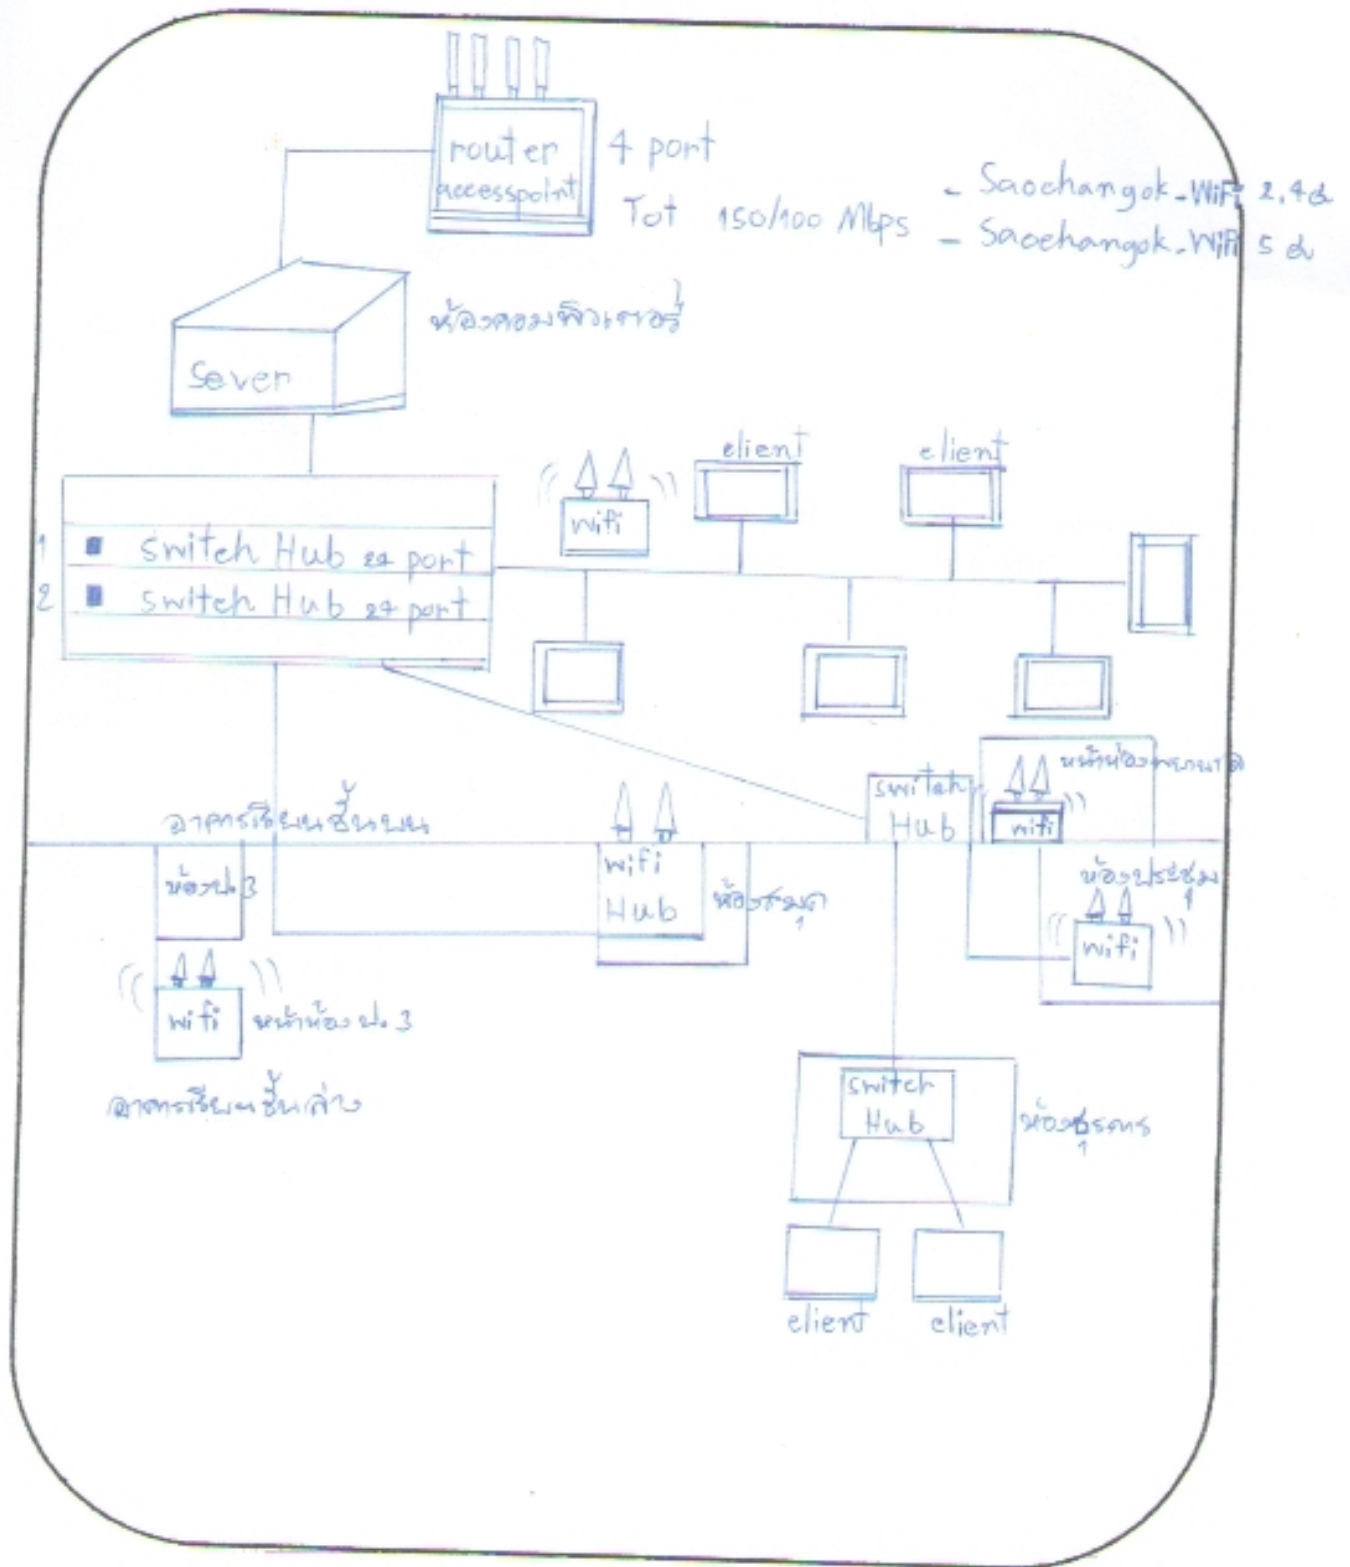 router
accesspoint
4 port
Tot 150/100 Mbps
- Saochangok-WiFi 2,4G
- Saochangok-WiFi 5G
ห้องคอมพิวเตอร์
Sever
1 switch Hub 24 port
2 switch Hub 24 port
wifi
client
client
อาคารเรียนชั้นบน
ห้องป.3
wifi
หน้าห้อง ป.3
อาคารเรียนชั้นล่าง
wifi
Hub
ห้องสมุด
switch
Hub
หน้าห้องพยาบาล
wifi
ห้องประชุม
wifi
switch
Hub
ห้องธุรการ
client
client